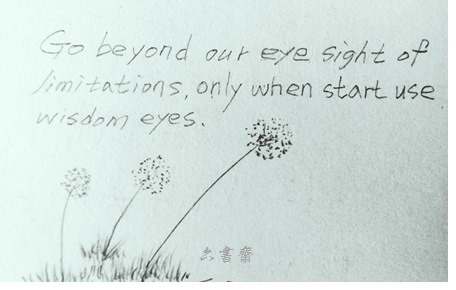 Go beyond our eye sight of
limitations, only when start use
wisdom eyes.
六書齋